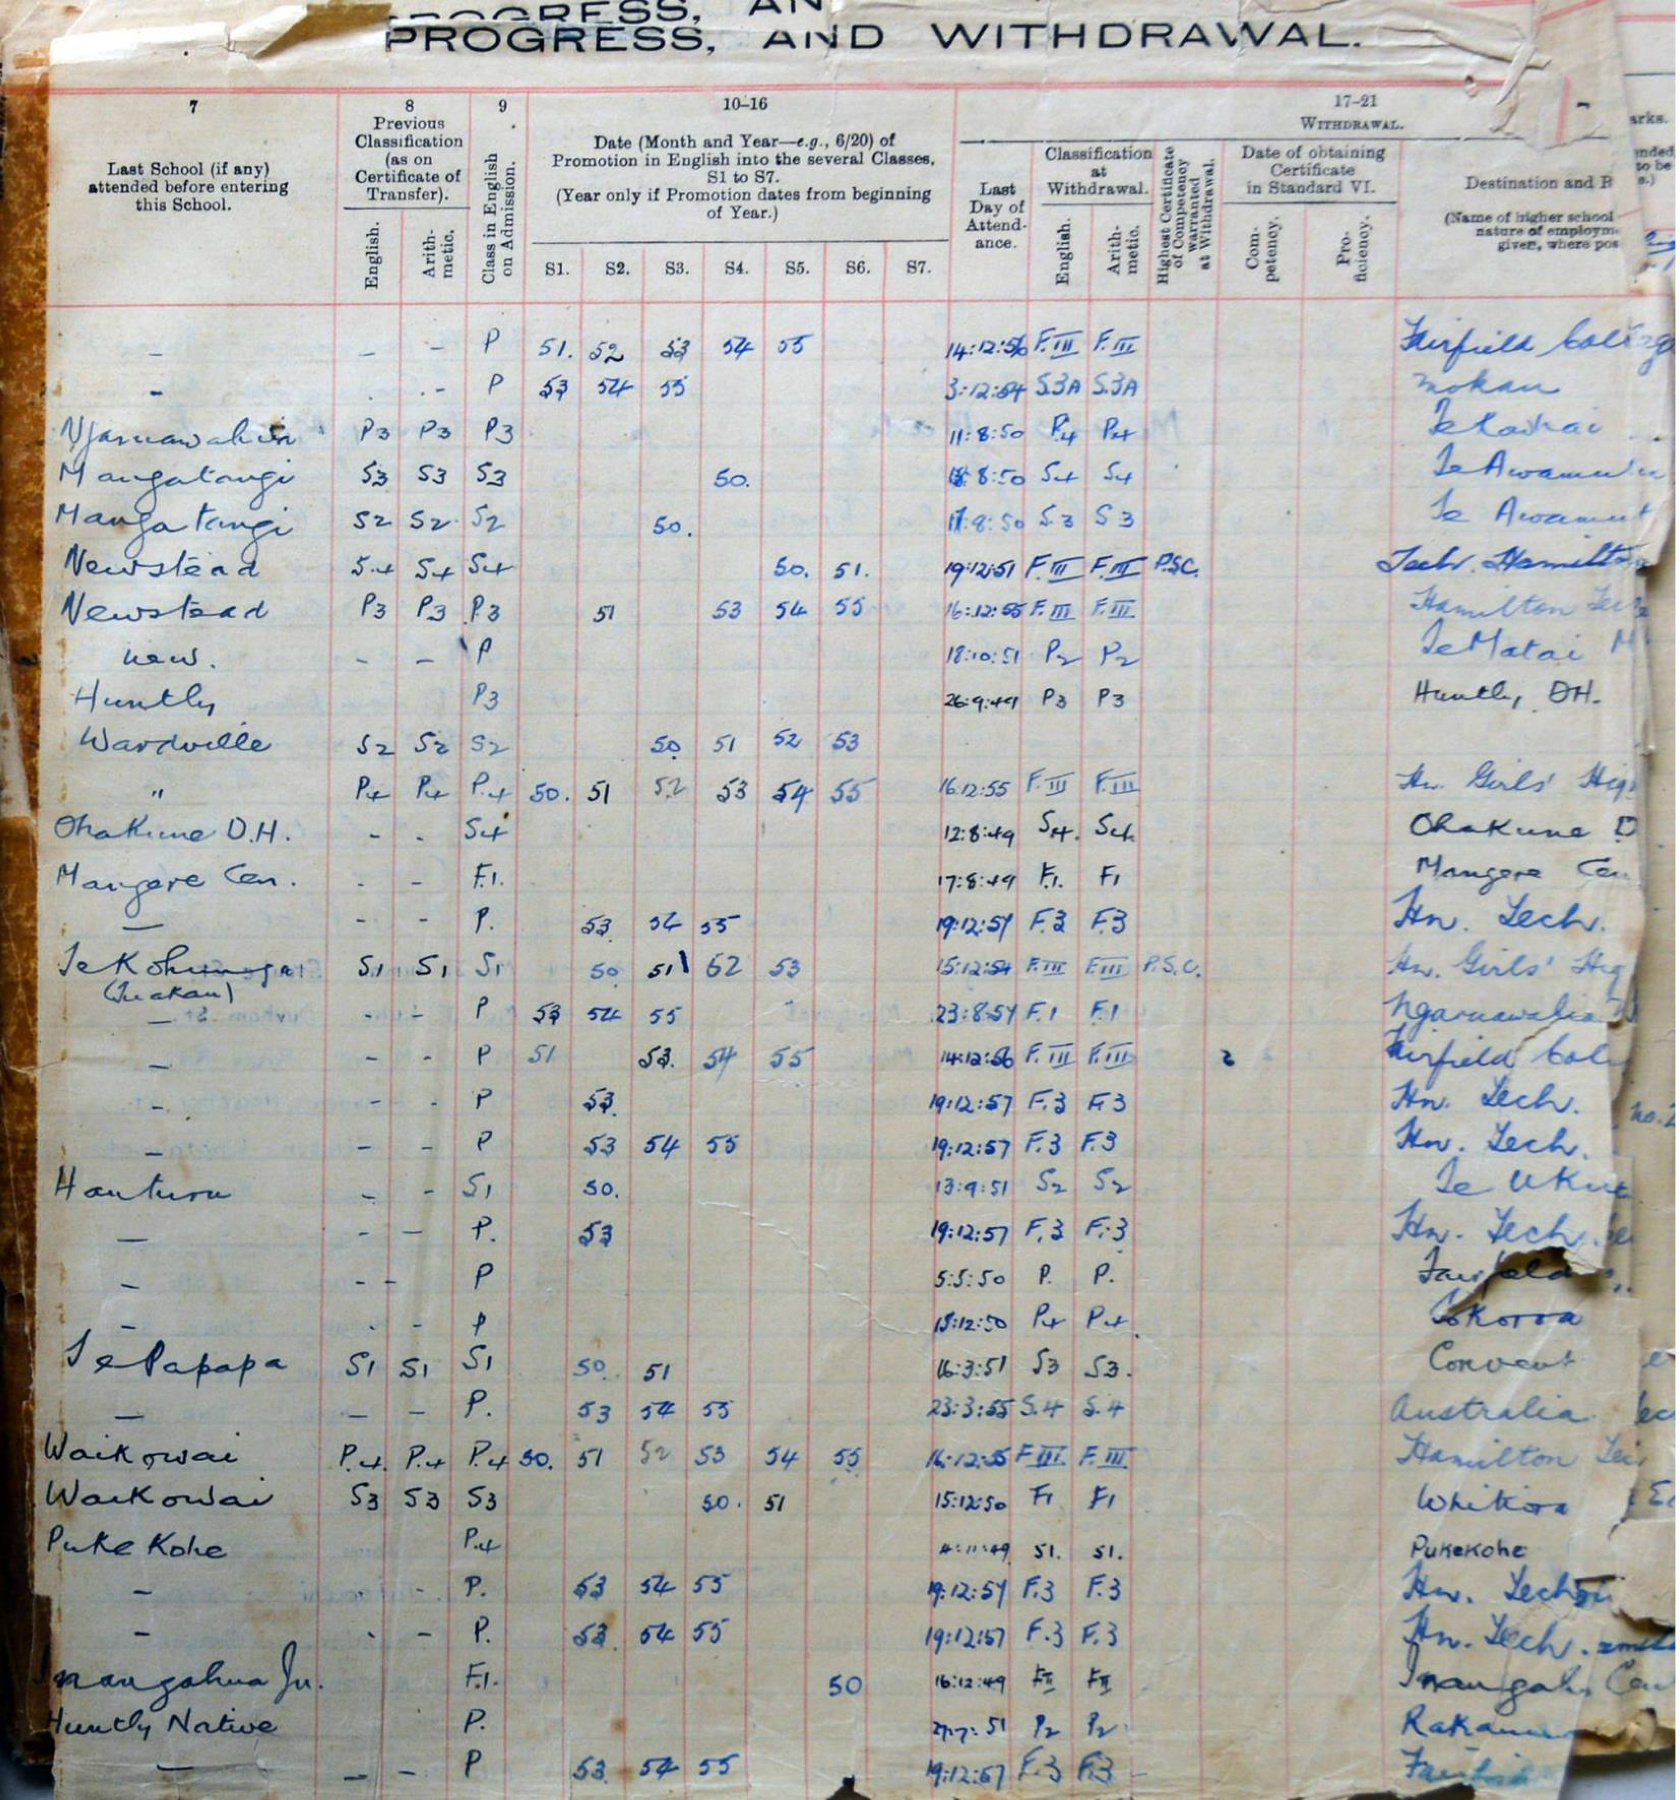 PROGRESS, AN
PROGRESS, AND WITHDRAWAL.
7 8 9 10–16 17–21
Last School (if any) attended before entering this School.
Previous Classification (as on Certificate of Transfer).
English. Arithmetic.
Class in English on Admission.
Date (Month and Year—e.g., 6/20) of Promotion in English into the several Classes, S1 to S7.
(Year only if Promotion dates from beginning of Year.)
S1. S2. S3. S4. S5. S6. S7.
WITHDRAWAL.
Last Day of Attendance.
Classification at Withdrawal.
English. Arithmetic.
Highest Certificate of Competency warranted at Withdrawal.
Date of obtaining Certificate in Standard VI.
Competency. Proficiency.
Destination and R
(Name of higher school
nature of employm
given, where pos
arks.
– – – P 51. 52 53 54 55 14:12:56 F.III F.III Fairfield College
– . - P 53 54 55 3:12:54 S3A S3A Mokau
Ngaruawahia P3 P3 P3 11:8:50 P4 P4
Mangatangi S3 S3 S3 50. 8:50 S4 S4 Te Awamu
Mangatangi S2 S2 S2 50. 8:50 S3 S3 Te Awamut
Newstead S4 S4 S4 50. 51. 19:12:51 F.III F.III P.S.C. Tech. Hamilton
Newstead P3 P3 P.3 51 53 54 55 16:12:55 F.III F.III Hamilton Tec
new. – – P 18:10:51 P2 P2 Te Matai
Huntly P3 26:9:49 P3 P3 Huntly, DH.
Wardville S2 S2 S2 50 51 52 53
" P4 P4 P.4 50. 51 52 53 54 55 16:12:55 F.III F.III Hn. Girls' Hig
Ohakune D.H. - - S4 12:8:49 S4. S4 Ohakune D
Mangere Cen. - - F.1. 17:8:49 F1. F1 Mangere Cen
– - - P. 53 54 55 19:12:57 F.3 F.3 Hn. Tech.
Te Kohunga S1 S1 S1 50 51 62 53 15:12:54 F.III F.III P.S.C. Hn. Girls' Hig
(Tuakau)
– - - P 53 54 55 23:8:57 F.1 F.1 Ngaruawahia
– - - P 51 53. 54 55 14:12:56 F.III F.III 2 Fairfield Col
– - - P 53. 19:12:57 F.3 F.3 Hn. Tech.
– - - P 53 54 55 19:12:57 F.3 F.3 Hn. Tech.
Hauturu - - S1 50. 13:9:51 S2 S2 Te Uku
– - – P. 53 19:12:57 F.3 F.3 Hn. Tech.
– - - P 5:5:50 P. P. Fairfield
– - - P 15:12:50 P4 P4 Tokoroa
Te Papapa S1 S1 S1 50. 51 16:3:51 S3 S3. Convent
– – – P. 53 54 55 23:3:55 S.4 S.4 Australia
Waikowai P.4. P.4 P.4 50. 51 52 53 54 55 16:12:55 F.III F.III Hamilton
Waikowai S3 S3 S3 50. 51 15:12:50 F1 F1 Whitiora
Pukekohe P.4 4:11:49 S1. S1. Pukekohe
– - P. 53 54 55 19:12:57 F.3 F.3 Hn. Tech
– . – P. 53. 54 55 19:12:57 F.3 F.3 Hn. Tech.
Inangahua Ju. F.1. 50 16:12:49 FII FII Inangah
Huntly Native P. 51 P2 P2
– – – P 53. 54 55 19:12:57 F.3 F.3